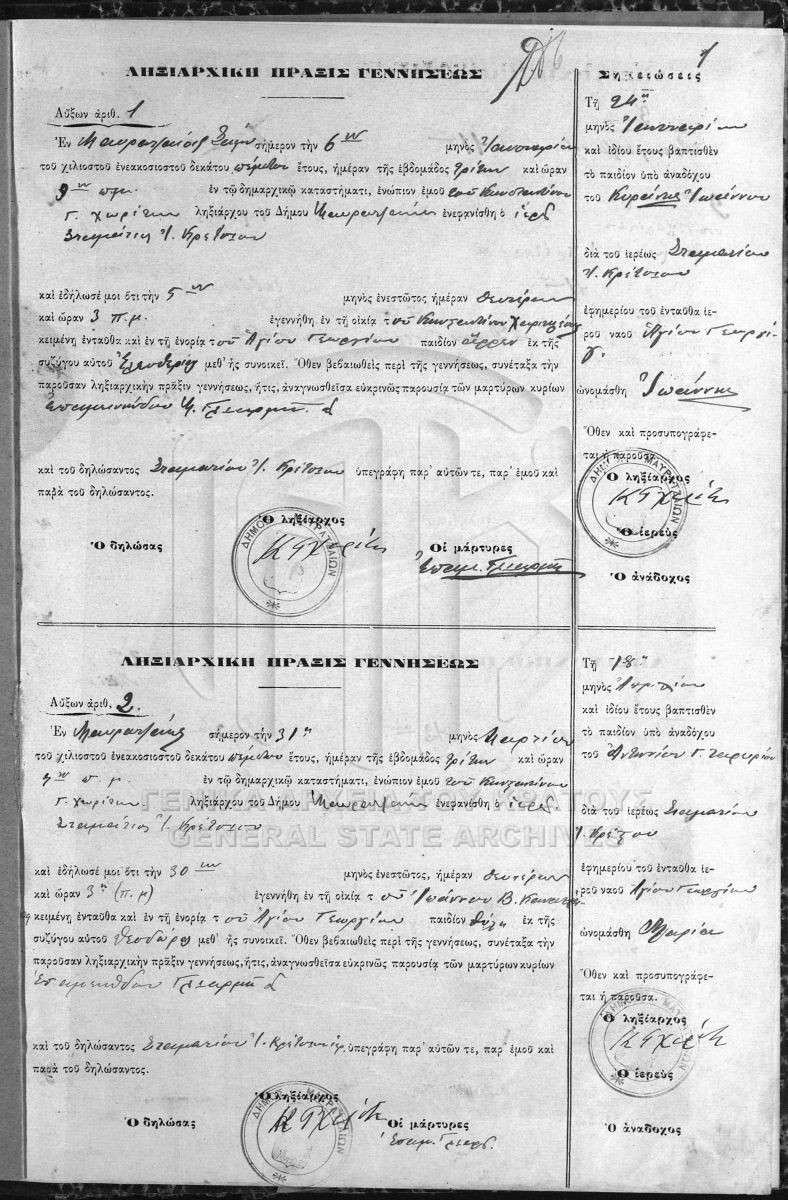 1
ΛΗΞΙΑΡΧΙΚΗ ΠΡΑΞΙΣ ΓΕΝΝΗΣΕΩΣ
Αὔξων ἀριθ. 1
Ἐν σήμερον τὴν 6ην μηνὸς Ἰανουαρίου
τοῦ χιλιοστοῦ ἐνεακοσιοστοῦ δεκάτου πέμπτου ἔτους, ἡμέραν τῆς ἑβδομάδος τρίτην καὶ ὥραν
9ην π.μ. ἐν τῷ δημαρχικῷ καταστήματι, ἐνώπιον ἐμοῦ τοῦ Κωνσταντίνου
Γ. Χωρίτου ληξιάρχου τοῦ Δήμου ἐνεφανίσθη ὁ ἱερεὺς
Σταμάτιος Ἰ.
καὶ ἐδήλωσέ μοι ὅτι τὴν 5ην μηνὸς ἐνεστῶτος ἡμέραν Δευτέραν
καὶ ὥραν 3 π.μ. ἐγεννήθη ἐν τῇ οἰκίᾳ τοῦ Κωνσταντίνου
κειμένῃ ἐνταῦθα καὶ ἐν τῇ ἐνορίᾳ τοῦ Ἁγίου Γεωργίου παιδίον ἄρρεν ἐκ τῆς
συζύγου αὐτοῦ Ἐλευθερίας μεθ' ἧς συνοικεῖ. Ὅθεν βεβαιωθεὶς περὶ τῆς γεννήσεως, συνέταξα τὴν
παροῦσαν ληξιαρχικὴν πρᾶξιν γεννήσεως, ἥτις, ἀναγνωσθεῖσα εὐκρινῶς παρουσίᾳ τῶν μαρτύρων κυρίων
Ἐπαμεινώνδου
καὶ τοῦ δηλώσαντος Σταματίου Ἰ. ὑπεγράφη παρ' αὐτῶν τε, παρ' ἐμοῦ καὶ
παρὰ τοῦ δηλώσαντος.
Ὁ ληξίαρχος
Ὁ δηλώσας
Οἱ μάρτυρες
Ἐπαμ.
ΔΗΜΟΣ ΜΑΥΡΑΤΖΑΙΩΝ
Σημειώσεις
Τῇ 24ῃ
μηνὸς Ἰανουαρίου
καὶ ἰδίου ἔτους βαπτισθὲν
τὸ παιδίον ὑπὸ ἀναδόχου
τοῦ Ἰωάννου
διὰ τοῦ ἱερέως Σταματίου
Ἰ.
ἐφημερίου τοῦ ἐνταῦθα ἱε-
ροῦ ναοῦ Ἁγίου Γεωργί-
ου
ὠνομάσθη Ἰωάννης
Ὅθεν καὶ προσυπογράφε-
ται ἡ παροῦσα.
Ὁ ληξίαρχος
Ὁ ἱερεὺς
Ὁ ἀνάδοχος
ΔΗΜΟΣ ΜΑΥΡΑΤΖΑΙΩΝ
ΛΗΞΙΑΡΧΙΚΗ ΠΡΑΞΙΣ ΓΕΝΝΗΣΕΩΣ
Αὔξων ἀριθ. 2.
Ἐν σήμερον τὴν 31η μηνὸς Μαρτίου
τοῦ χιλιοστοῦ ἐνεακοσιοστοῦ δεκάτου πέμπτου ἔτους, ἡμέραν τῆς ἑβδομάδος τρίτην καὶ ὥραν
π.μ. ἐν τῷ δημαρχικῷ καταστήματι, ἐνώπιον ἐμοῦ τοῦ Κωνσταντίνου
Γ. Χωρίτου ληξιάρχου τοῦ Δήμου ἐνεφανίσθη ὁ ἱερεὺς
Σταμάτιος Ἰ.
ΓΕΝΙΚΑ ΑΡΧΕΙΑ ΤΟΥ ΚΡΑΤΟΥΣ
GENERAL STATE ARCHIVES
καὶ ἐδήλωσέ μοι ὅτι τὴν 30ην μηνὸς ἐνεστῶτος, ἡμέραν Δευτέραν
καὶ ὥραν 3η (π.μ) ἐγεννήθη ἐν τῇ οἰκίᾳ τοῦ Ἰωάννου Β.
κειμένῃ ἐνταῦθα καὶ ἐν τῇ ἐνορίᾳ τοῦ Ἁγίου Γεωργίου παιδίον θῆλυ ἐκ τῆς
συζύγου αὐτοῦ Θεοδώρας μεθ' ἧς συνοικεῖ. Ὅθεν βεβαιωθεὶς περὶ τῆς γεννήσεως, συνέταξα τὴν
παροῦσαν ληξιαρχικὴν πρᾶξιν γεννήσεως, ἥτις, ἀναγνωσθεῖσα εὐκρινῶς παρουσίᾳ τῶν μαρτύρων κυρίων
καὶ τοῦ δηλώσαντος Σταματίου Ἰ. ὑπεγράφη παρ' αὐτῶν τε, παρ' ἐμοῦ καὶ
παρὰ τοῦ δηλώσαντος.
Ὁ ληξίαρχος
Ὁ δηλώσας
Οἱ μάρτυρες
Ἐπαμ.
ΔΗΜΟΣ ΜΑΥΡΑΤΖΑΙΩΝ
Τῇ 18η
μηνὸς Ἀπριλίου
καὶ ἰδίου ἔτους βαπτισθὲν
τὸ παιδίον ὑπὸ ἀναδόχου
τοῦ Ἀντωνίου Γ.
διὰ τοῦ ἱερέως Σταματίου
Ἰ.
ἐφημερίου τοῦ ἐνταῦθα ἱε-
ροῦ ναοῦ Ἁγίου Γεωργίου
ὠνομάσθη Μαρία
Ὅθεν καὶ προσυπογράφε-
ται ἡ παροῦσα.
Ὁ ληξίαρχος
Ὁ ἱερεὺς
Ὁ ἀνάδοχος